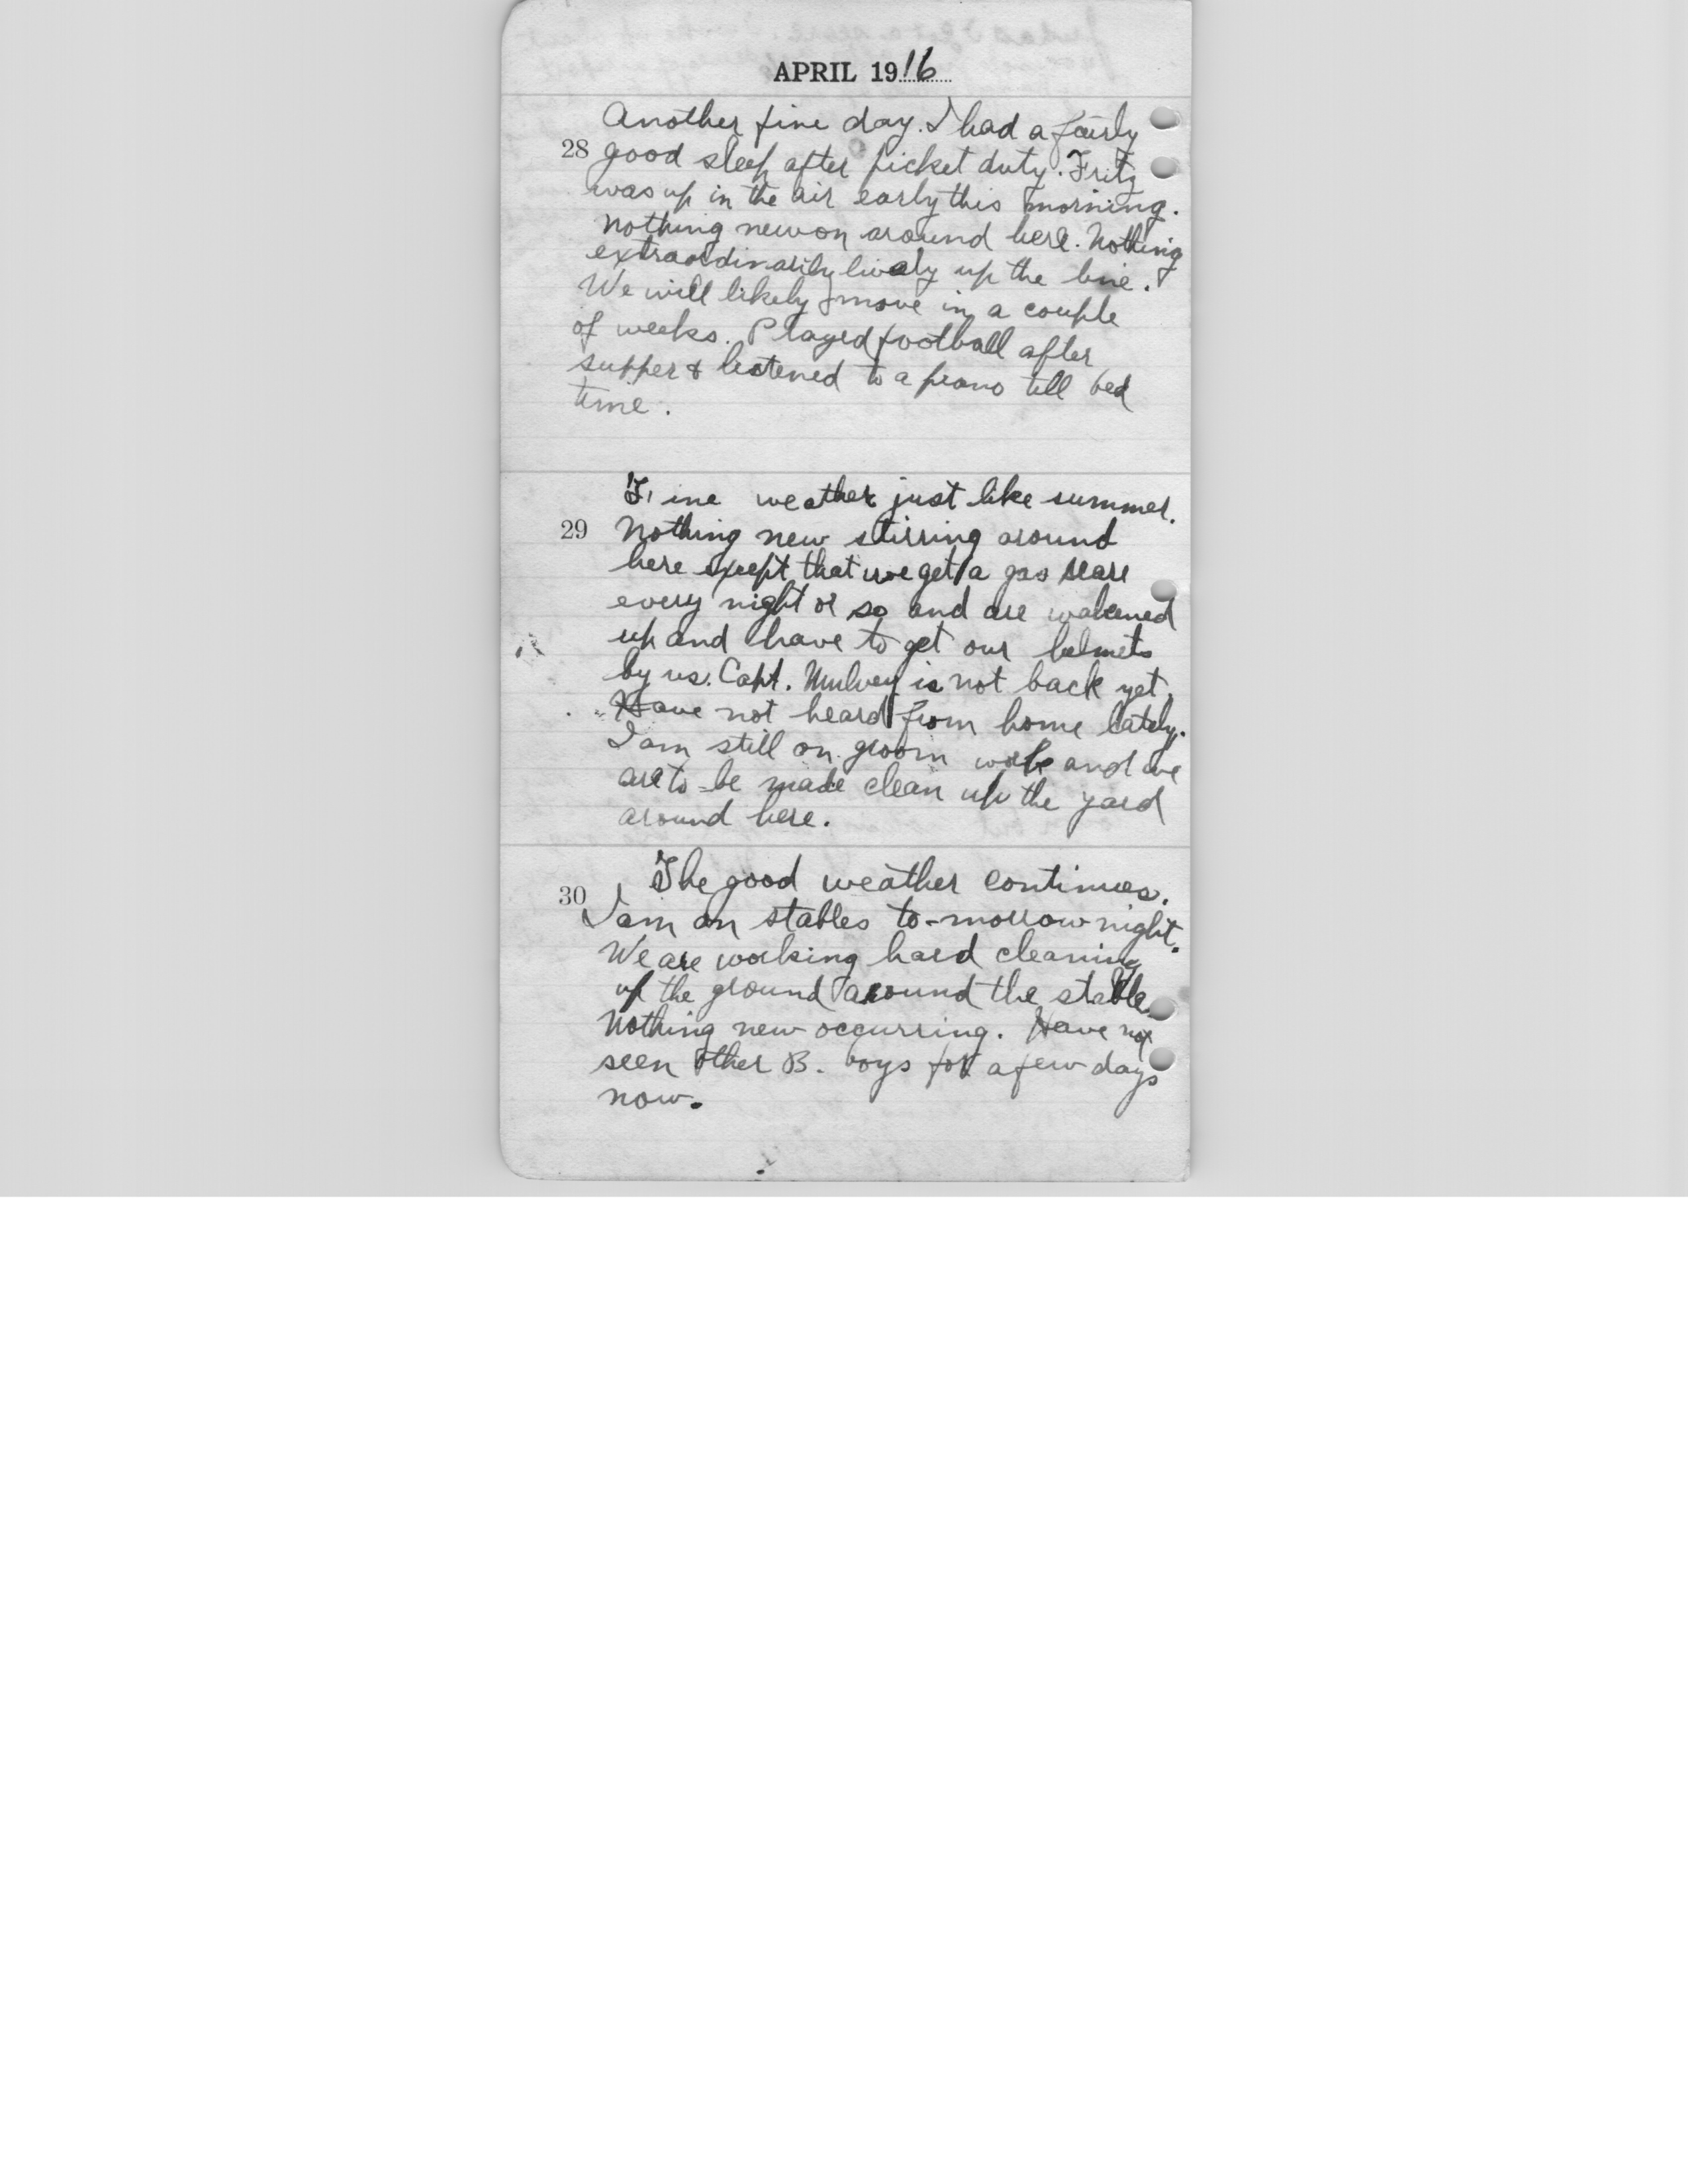 APRIL 1916
Another fine day. I had a fairly
28 good sleep after picket duty. Fritz
was up in the air early this morning.
Nothing new on around here. Nothing
extraordinarily lively up the line.
We will likely move in a couple
of weeks. Played football after
supper & listened to a piano till bed
time.
Fine weather just like summer.
29 Nothing new stirring around
here except that we get a gas scare
every night or so and are wakened
up and have to get our helmets
by us. Capt. Mulvey is not back yet.
Have not heard from home lately.
I am still on groom work and we
are to be made clean up the yard
around here.
The good weather continues.
30 I am on stables to-morrow night.
We are working hard cleaning
up the ground around the stable.
Nothing new occurring. Have not
seen other B. boys for a few days
now.